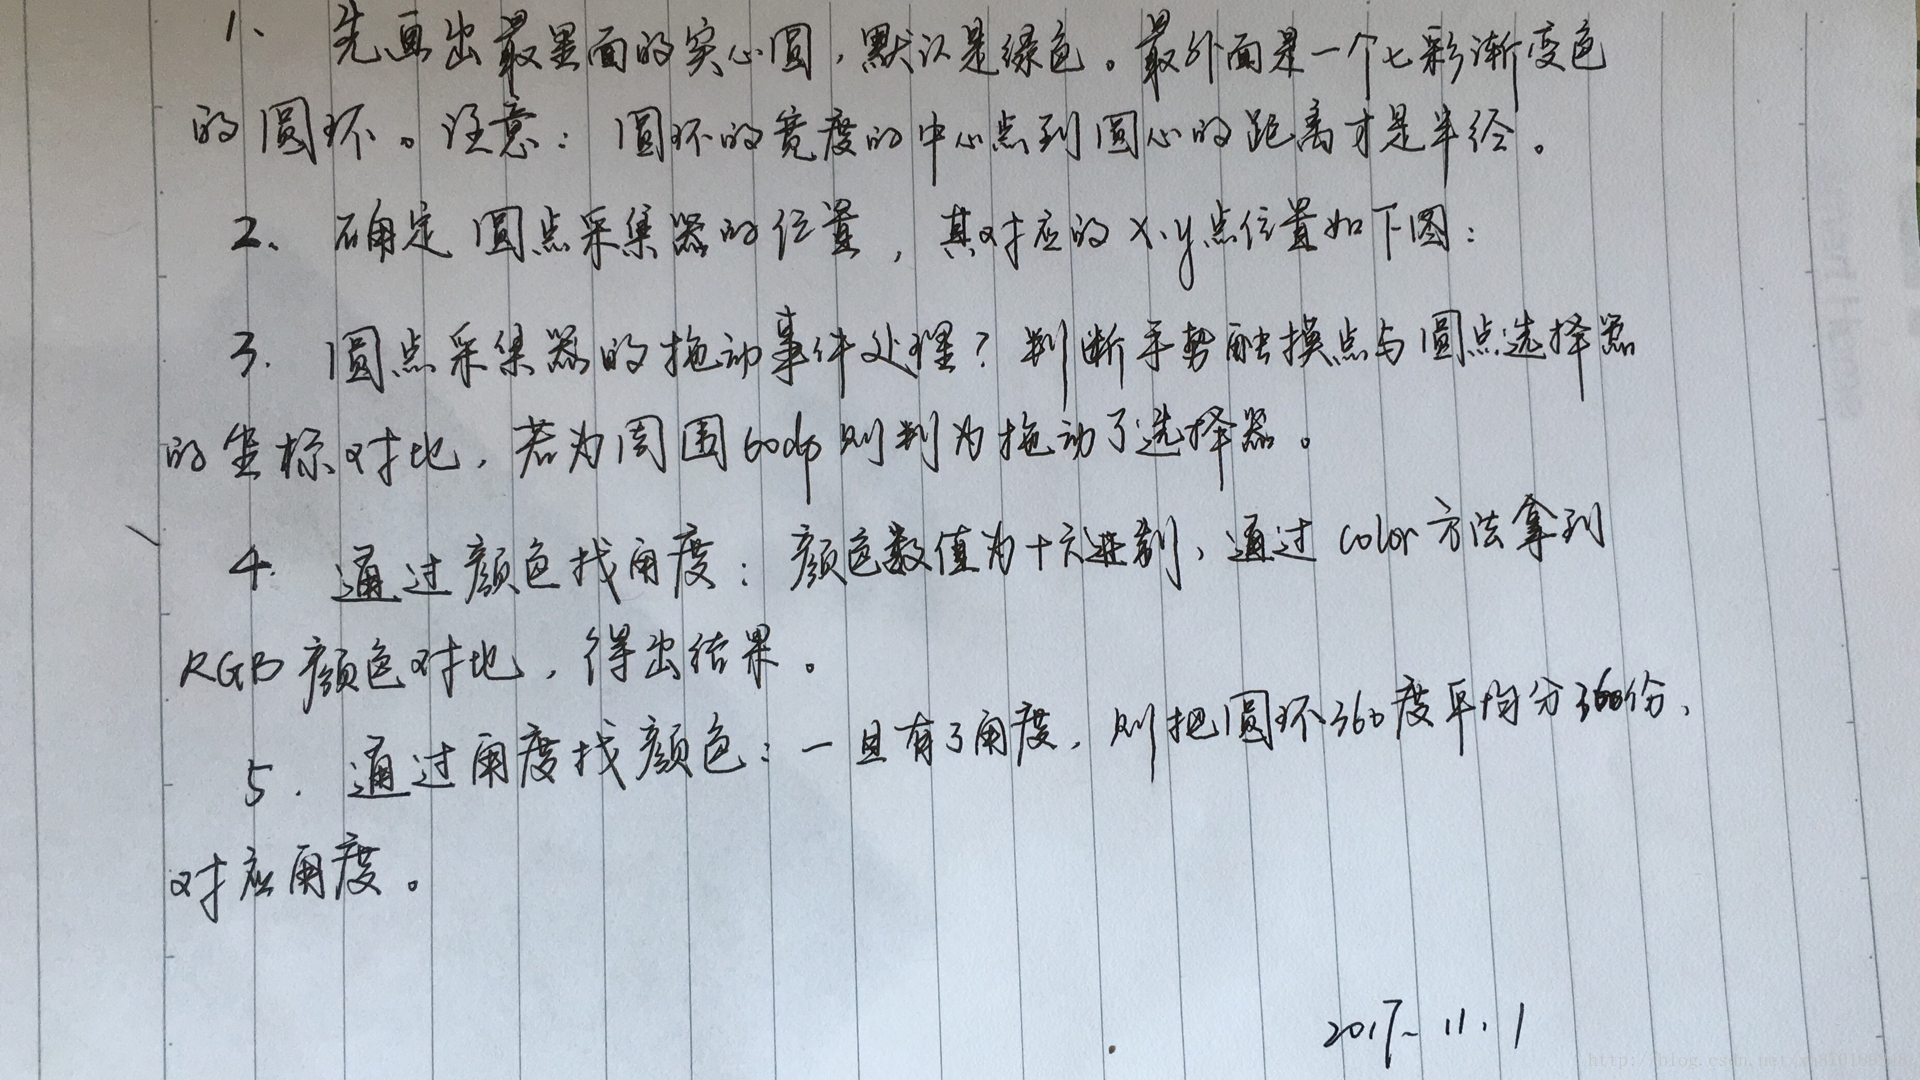 1、 先画出最里面的实心圆，默认是绿色。最外面是一个七彩渐变色
的圆环。注意：圆环的宽度的中心点到圆心的距离才是半径。
2、 确定圆点采集器的位置，其对应的x.y点位置如下图：
3. 圆点采集器的拖动事件处理？判断手势触摸点与圆点选择器
的坐标对比，若为周围60dp则判为拖动了选择器。
4. 通过颜色找角度：颜色数值为十六进制，通过color方法拿到
RGB颜色对比，得出结果。
5. 通过角度找颜色：一旦有了角度，则把圆环360度平均分360份、
对应角度。
2017-11.1
http://blog.csdn.net/